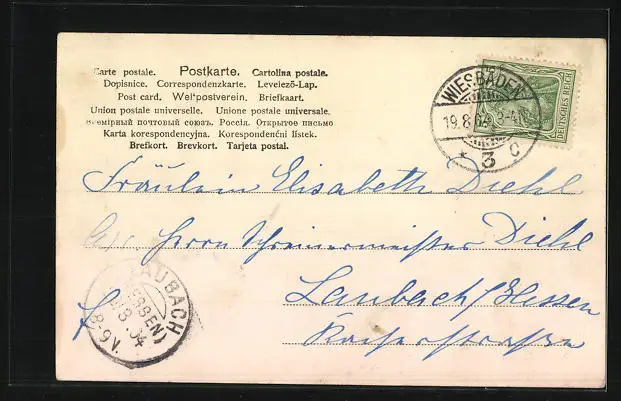 Carte postale. Postkarte. Cartolina postale.
Dopisnice. Correspondenzkarte. Levelező-Lap.
Post card. Weltpostverein. Briefkaart.
Union postale universelle. Unione postale universale.
Всемірный почтовый союзъ. Россія. Открытое письмо
Karta korespondencyjna. Korespondenční lístek.
Brefkort. Brevkort. Tarjeta postal.
WIESBADEN
19.8.04 3-4N
* 3 c
DEUTSCHES REICH
Fräulein Elisabeth Diehl
Herrn Schreinermeister Diehl
Laubach/Hessen
Kaiserstrasse
LAUBACH
(HESSEN)
8.04
8-9V.